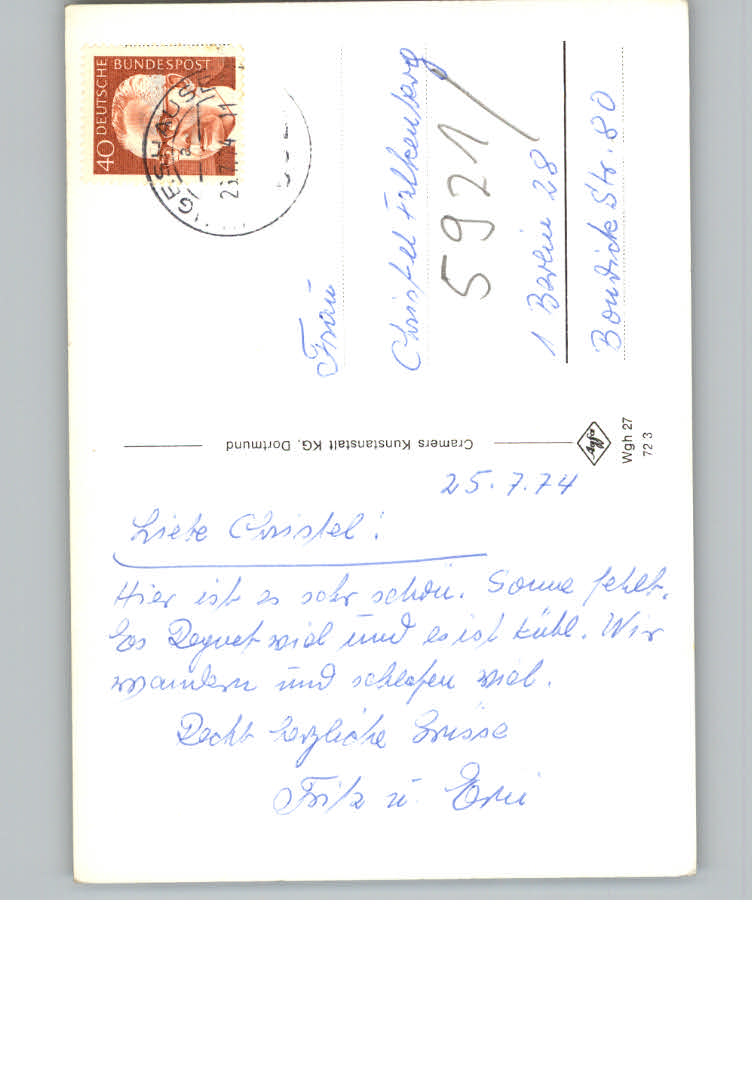 25.7.74
Liebe Christel!
Hier ist es sehr schön. Sonne fehlt.
Es Regnet viel und es ist kühl. Wir
wandern und schlafen viel.
Recht herzliche Grüsse
Fritz u.
Frau
Christel Falkenberg
5921/
1 Berlin 28
Str. 80
DEUTSCHE BUNDESPOST
40
Cramers Kunstanstalt KG, Dortmund
Agfa
Wgh 27
72 3